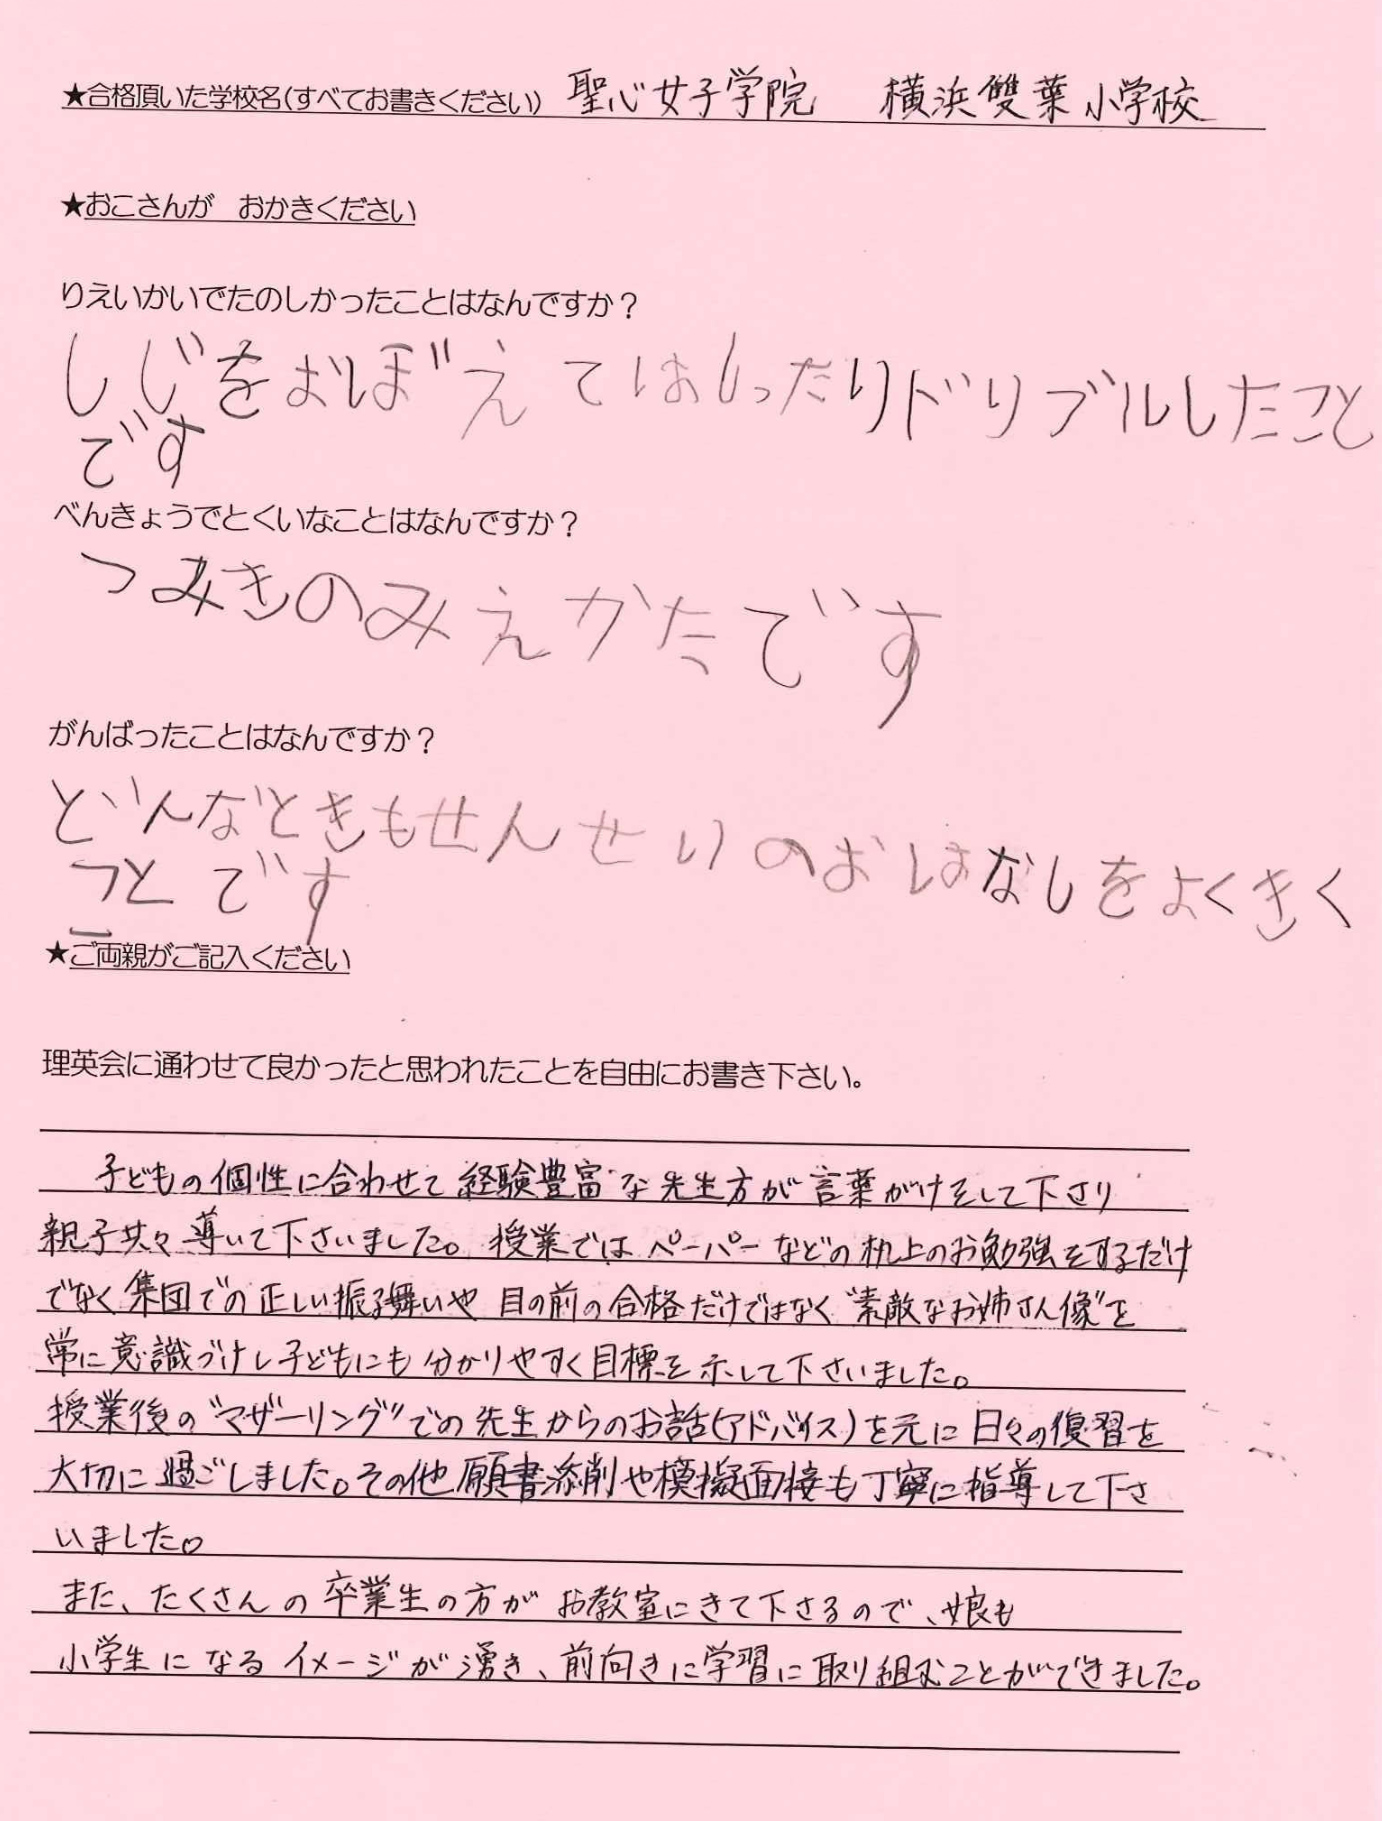 ★合格頂いた学校名(すべてお書きください) 聖心女子学院 横浜雙葉小学校
★おこさんが おかきください
りえいかいでたのしかったことはなんですか？
しじをおぼえてはしったりドリブルしたこと
です
べんきょうでとくいなことはなんですか？
つみきのみえかたです
がんばったことはなんですか？
どんなときもせんせいのおはなしをよくきく
ことです
★ご両親がご記入ください
理英会に通わせて良かったと思われたことを自由にお書き下さい。
子どもの個性に合わせて経験豊富な先生方が言葉がけをして下さり
親子共々導いて下さいました。授業ではペーパーなどの机上のお勉強をするだけ
でなく集団での正しい振る舞いや目の前の合格だけではなく"素敵なお姉さん像"を
常に意識づけし子どもにも分かりやすく目標を示して下さいました。
授業後の"マザーリング"での先生からのお話(アドバイス)を元に日々の復習を
大切に過ごしました。その他願書添削や模擬面接も丁寧に指導して下さ
いました。
また、たくさんの卒業生の方がお教室にきて下さるので、娘も
小学生になるイメージが湧き、前向きに学習に取り組むことができました。